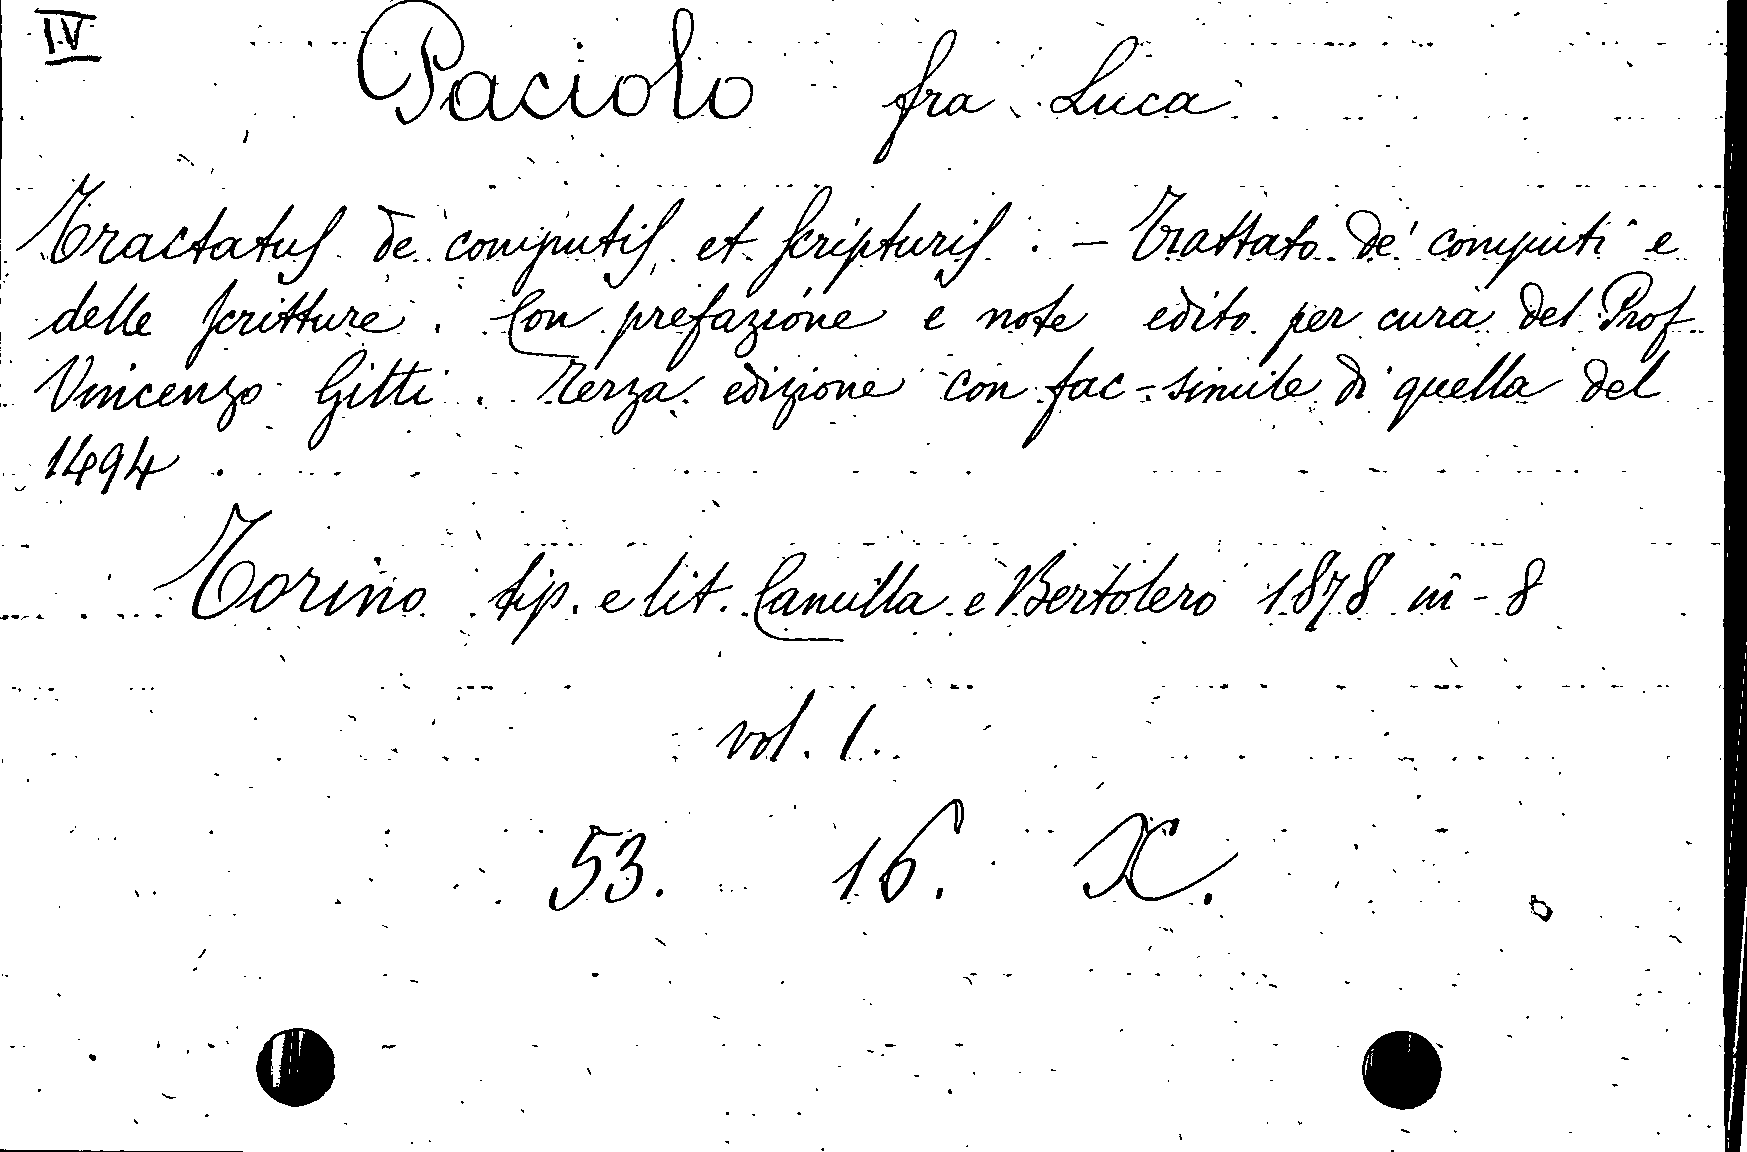 IV
Paciolo fra Luca
Tractatus de computis et scripturis. - Trattato de' computi e
delle scritture. Con prefazione e note edito per cura del Prof.
Vincenzo Gitti. Terza edizione con fac-simile di quella del
1494.
Torino tip. e lit. Camilla e Bertolero 1878 in-8
vol. 1.
53. 16. X.